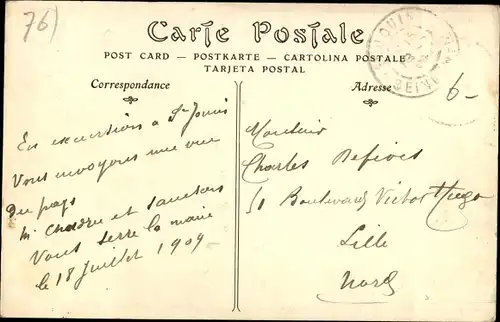 76)
Carte Postale
POST CARD — POSTKARTE — CARTOLINA POSTALE
TARJETA POSTAL
Correspondance
Adresse
6-
En excursion à St Jouin
Vous envoyons une vue
du pays
M. et
Vous serre la main
le 18 Juillet 1909
Monsieur
Charles
51 Boulevard Victor Hugo
Lille
Nord